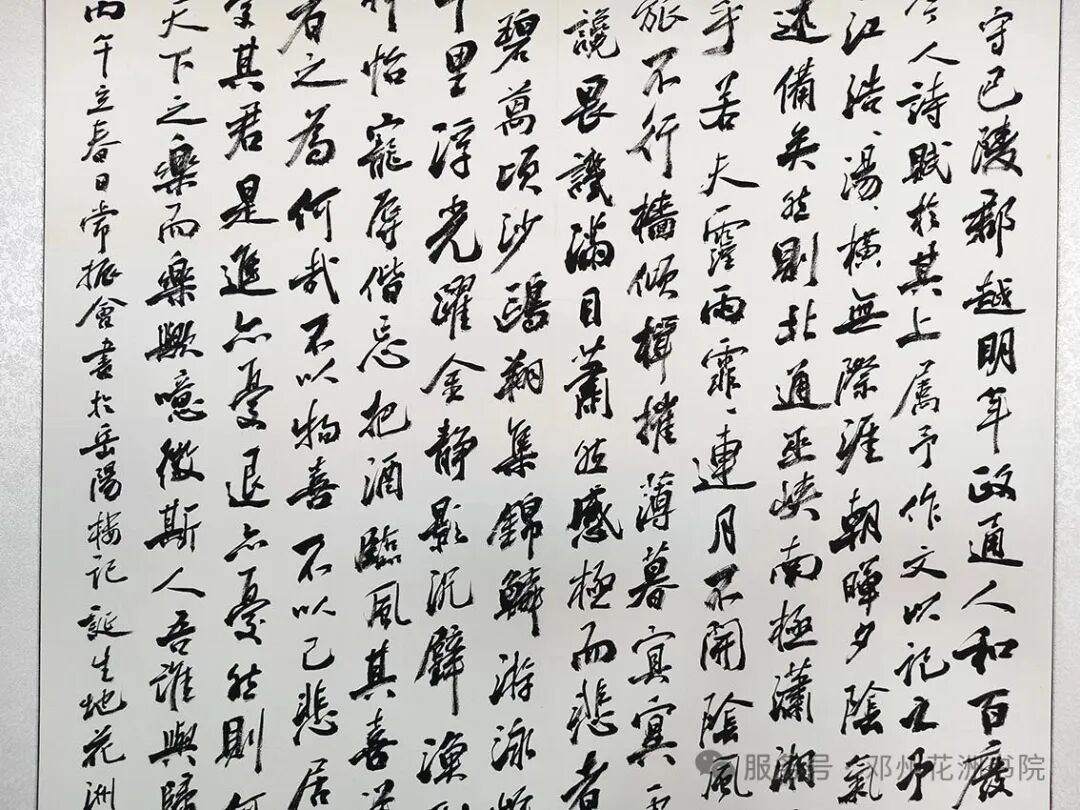 守巴陵郡越明年政通人和百廢
今人詩賦於其上属予作文以記之予
江浩、湯、橫無際涯朝暉夕陰氣
述備矣然則北通巫峽南極瀟湘
乎若夫霪雨霏、連月不開陰風
旅不行檣傾楫摧薄暮冥冥
讒畏譏滿目蕭然感極而悲者
碧萬頃沙鷗翔集錦鱗游泳
千里浮光躍金静影沉璧漁
怡寵辱偕忘把酒臨風其喜
者之為何哉不以物喜不以己悲居
其君是進亦憂退亦憂然則何
天下之樂而樂歟噫微斯人吾誰與歸
丙午立春日常振會書於岳陽樓记誕生地花洲
服务号·邓州花洲书院